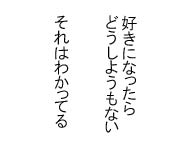 好きになったら
どうしようもない
それはわかってる